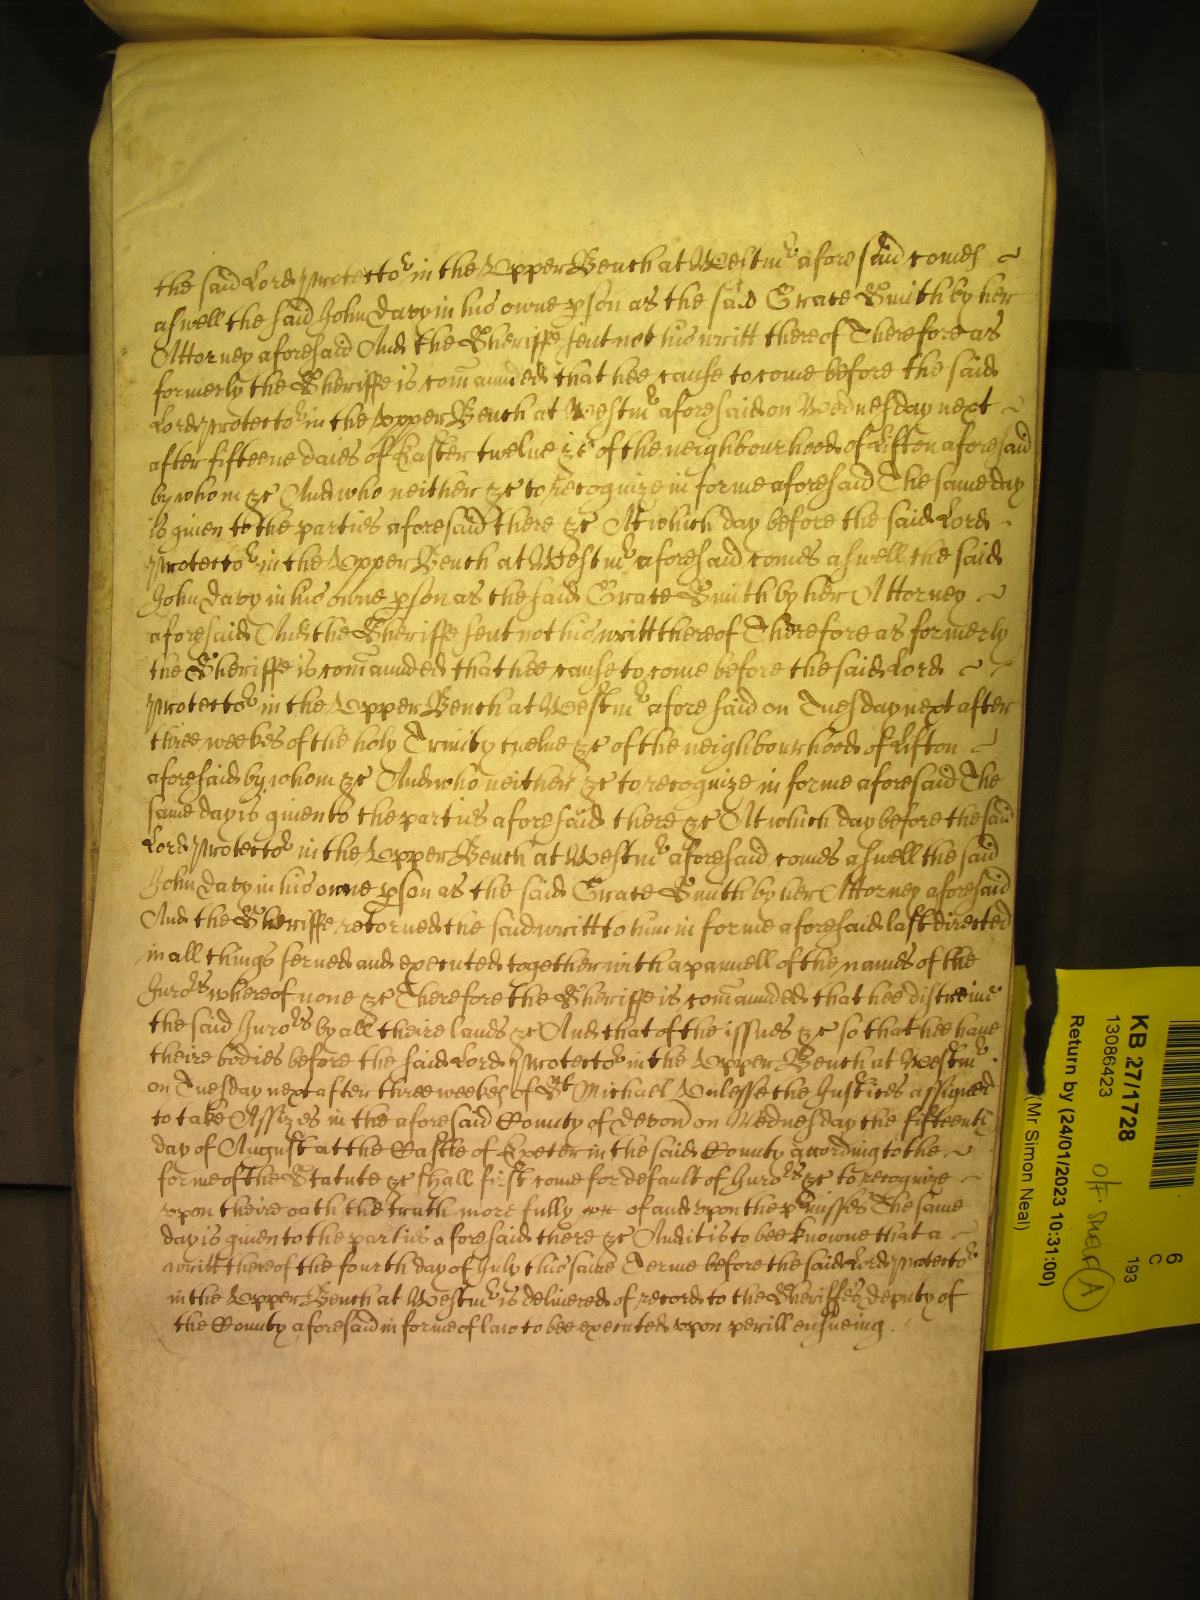 the said Lord Protector in the Upper Bench at Westmr aforesaid comes
aswell the said John Davy in his owne pson as the said Grace Smith by her
Attorney aforesaid And the Sheriffe sent not his writt thereof Therefore as
formerly the Sheriffe is comaunded that hee cause to come before the said
Lord Protector in the Upper Bench at Westmr aforesaid on Wednesday next
after fifteene daies of Easter twelve &c of the neighbourhood of Lifton aforesaid
by whom &c And who neither &c to recognize in forme aforesaid The same day
is given to the parties aforesaid there &c At which day before the said Lord
Protector in the Upper Bench at Westmr aforesaid comes aswell the said
John Davy in his owne pson as the said Grace Smith by her Attorney
aforesaid And the Sheriffe sent not his writt thereof Therefore as formerly
the Sheriffe is comaunded that hee cause to come before the said Lord
Protector in the Upper Bench at Westmr aforesaid on Tuesday next after
three weekes of the holy Trinity twelve &c of the neighbourhood of Lifton
aforesaid by whom &c And who neither &c to recognize in forme aforesaid The
same day is given to the parties aforesaid there &c At which day before the said
Lord Protector in the Upper Bench at Westmr aforesaid comes aswell the said
John Davy in his owne pson as the said Grace Smith by her Attorney aforesaid
And the Sheriffe retorned the said writt to him in forme aforesaid last directed
in all things served and executed together with a pannell of the names of the
Jurors whereof none &c Therefore the Sheriffe is comaunded that hee distreine
the said Jurors by all theire lands &c And that of the issues &c so that hee have
theire bodies before the said Lord Protector in the Upper Bench at Westmr
on Tuesday next after three weekes of St Michael Unlesse the Justices assigned
to take Assizes in the aforesaid County of Devon on Wednesday the fifteenth
day of August at the Castle of Exeter in the said County according to the
forme of the Statute &c shall first come for default of Jurors &c to recognize
upon theire oath the truth more fully of and upon the pmisses The same
day is given to the parties aforesaid there &c And it is to bee knowne that a
writt thereof the fourth day of July this same Terme before the said Lord Protector
in the Upper Bench at Westmr is delivered of record to the Sheriffes deputy of
the County aforesaid in forme of law to bee executed upon perill ensueing
KB 27/1728
13086423
Return by (24/01/2023 10:31:00)
(Mr Simon Neal)
6
C
193
O/F Shelf
A